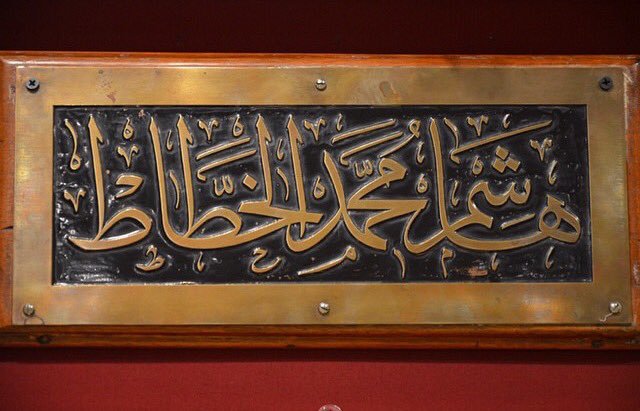 هاشم محمد الخطاط